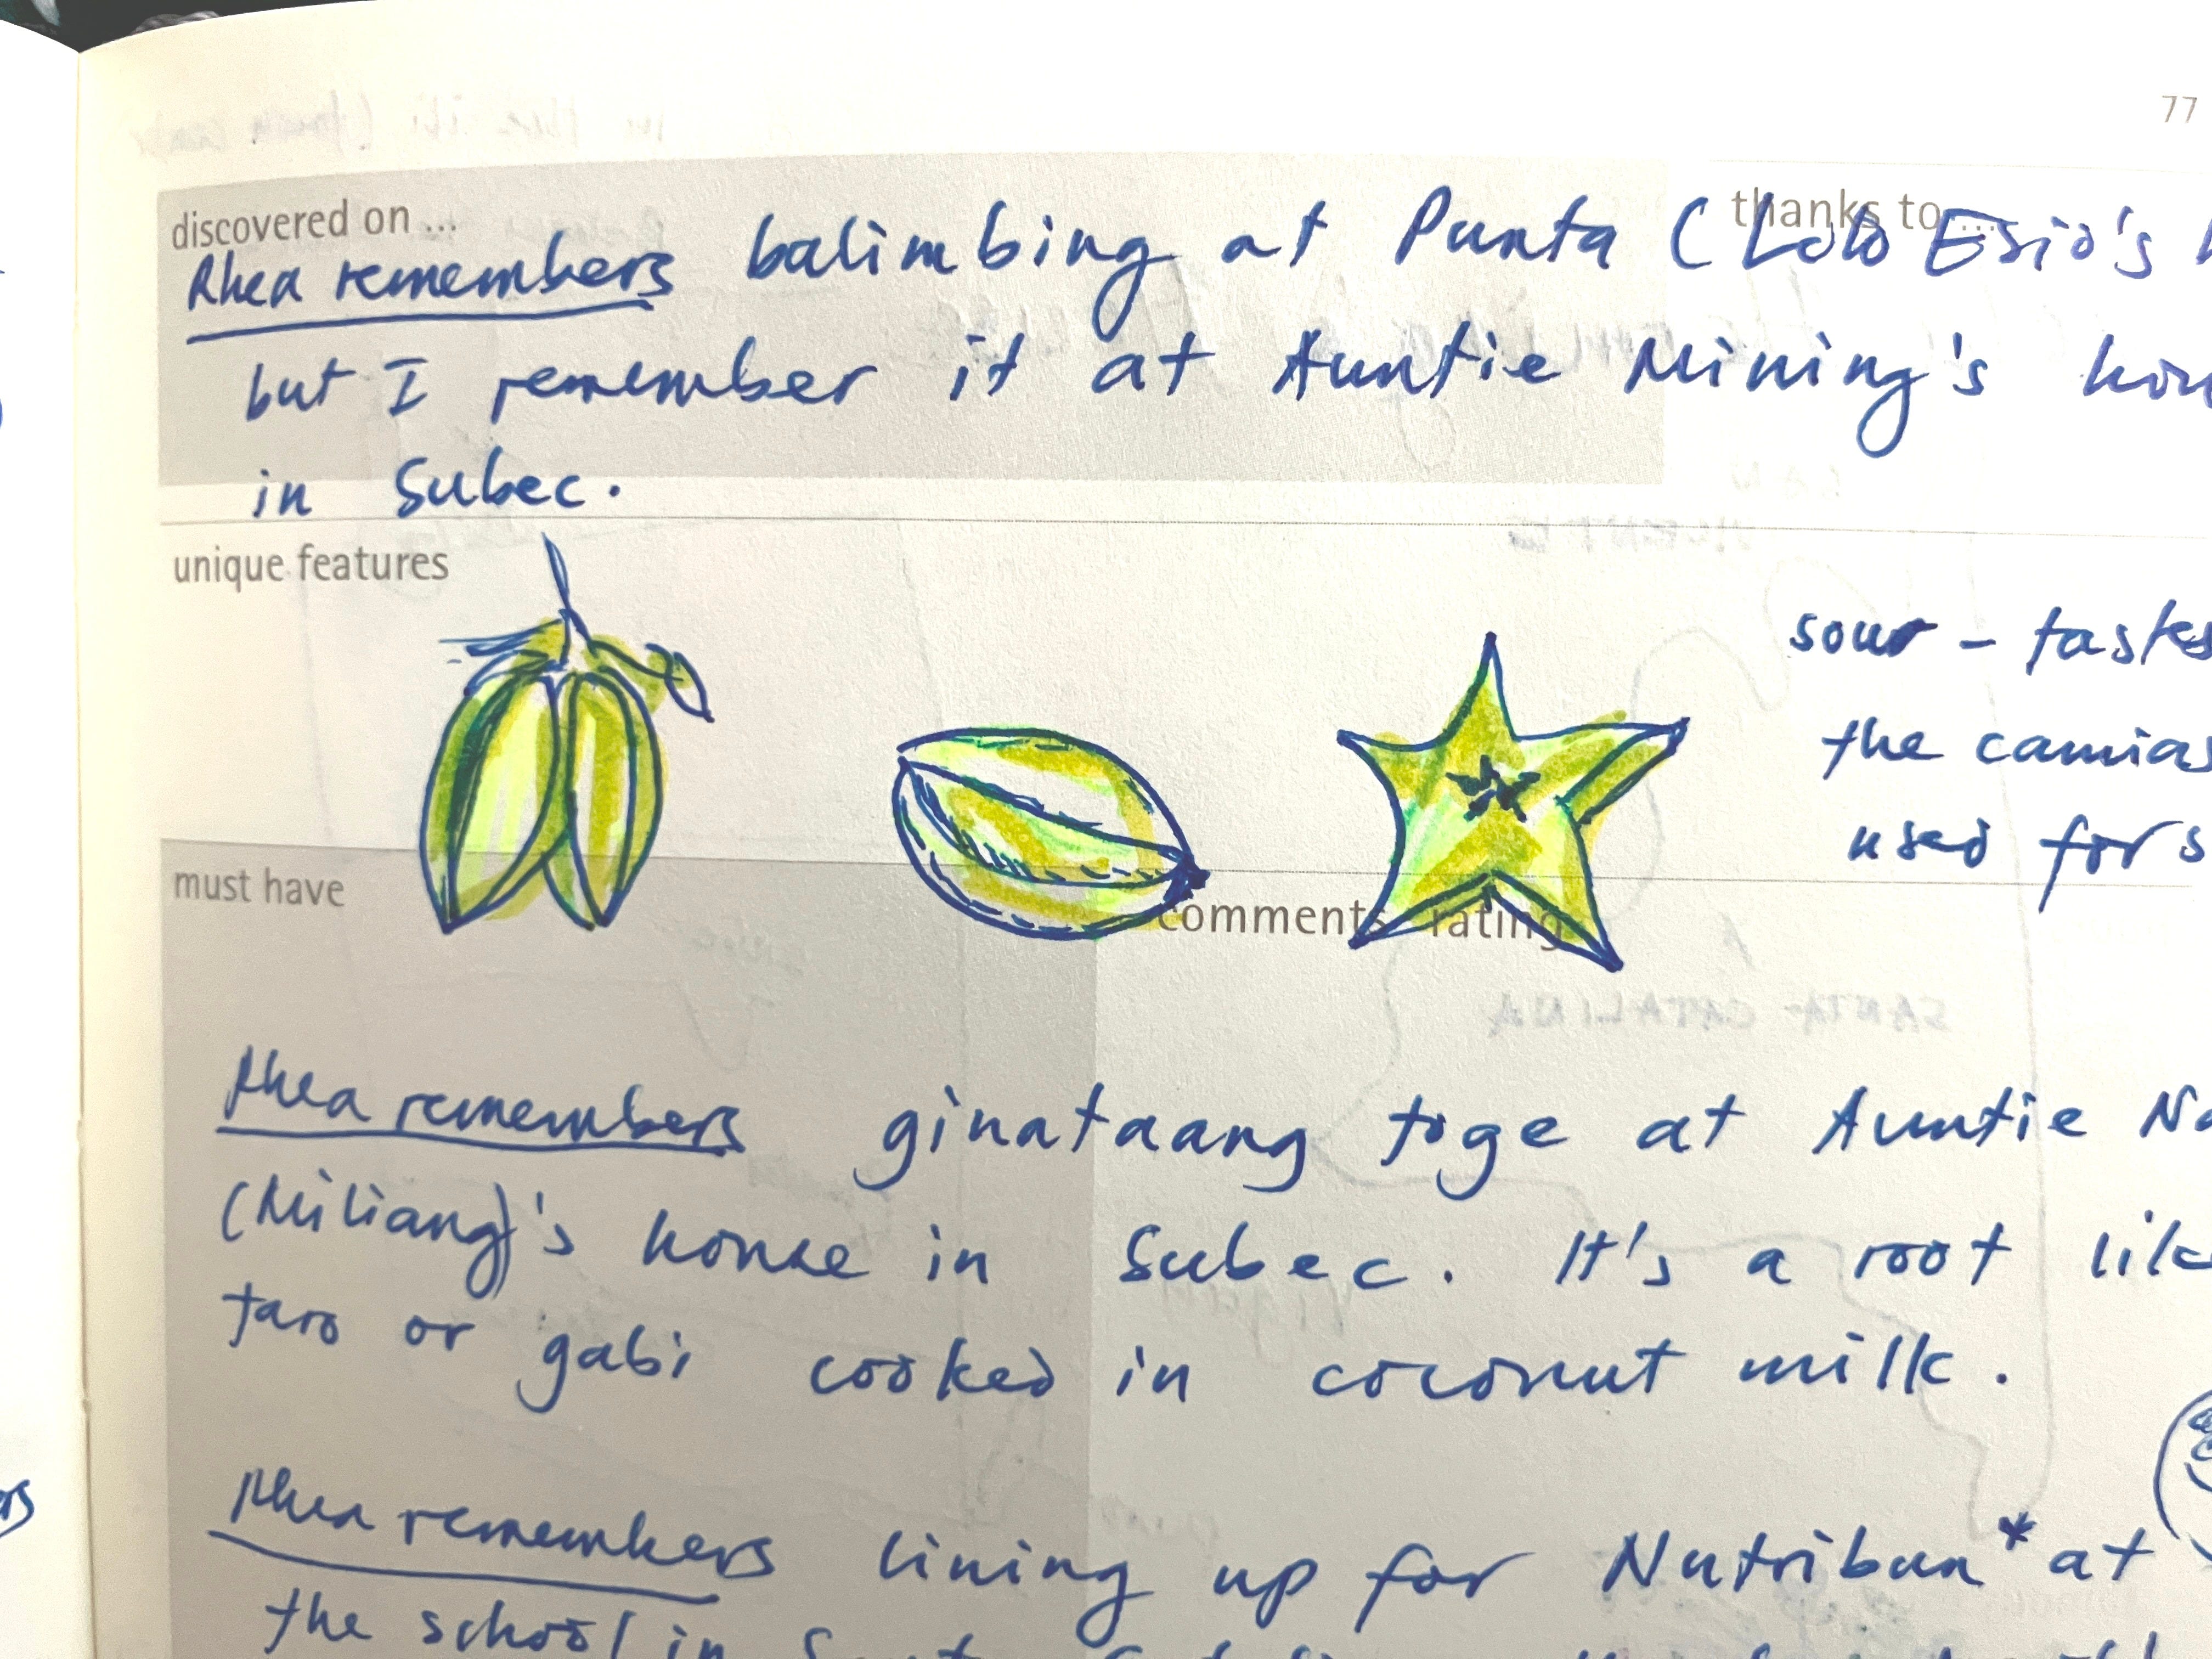 77
discovered on ...
thanks to ...
Rhea remembers balimbing at Punta (Lolo Esio's
but I remember it at Auntie Mining's
in Subec.
unique features
sour - tastes
the camias
used for
must have
comments rating
Rhea remembers ginataang toge at Auntie
(Miliang)'s house in Subec. It's a root
taro or gabi cooked in coconut milk.
Rhea remembers lining up for Nutribun* at
the school in